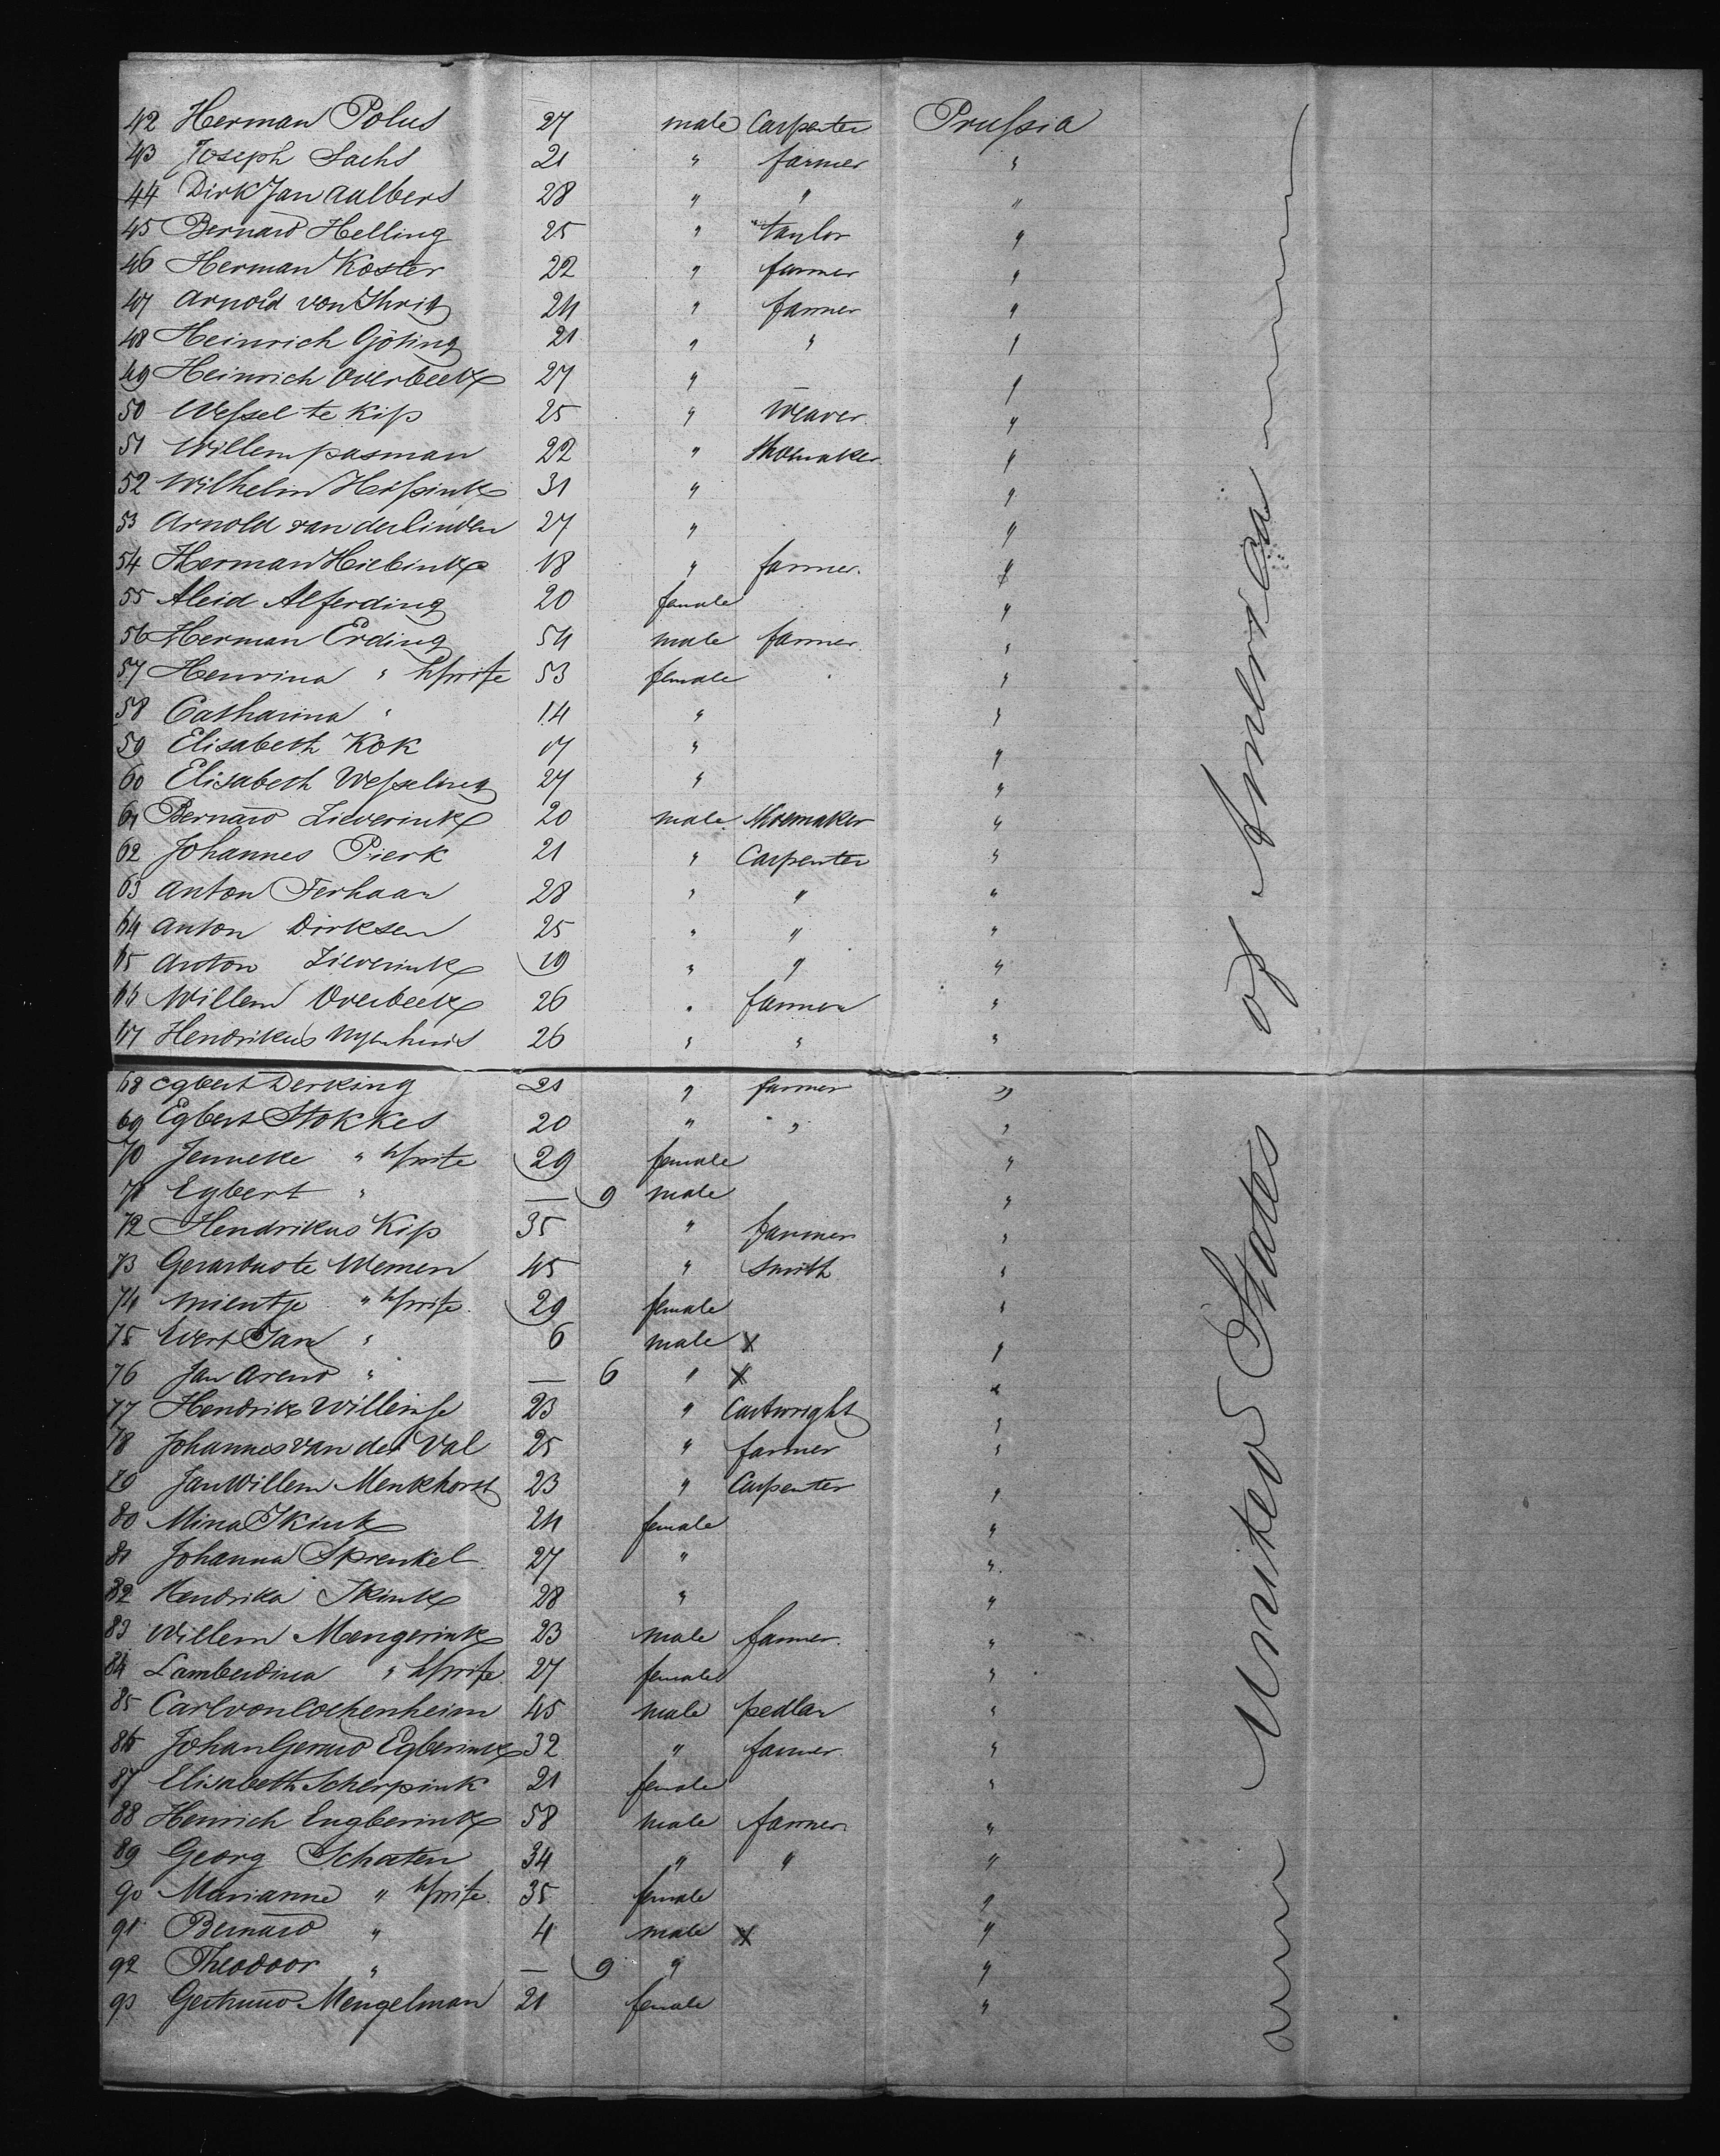 42 Herman Polus 27 male Carpenter Prussia
43 Joseph Sachs 21 " farmer "
44 Dirk Jan Aalbers 28 " " "
45 Bernard Helling 25 " taylor "
46 Herman Koster 22 " farmer "
47 Arnold von 24 " farmer "
48 Heinrich Göting 21 " " "
49 Heinrich Overbeek 27 " — "
50 Wessel te Kip 25 " Weaver "
51 Willem pasman 22 " Shoemaker "
52 Wilhelm 31 " "
53 Arnold van der Linden 27 " "
54 Herman Hiebink 18 " farmer "
55 Aleid Alferding 20 female "
56 Herman Erding 54 male farmer "
57 Henrina " h/wife 53 female "
58 Catharina " 14 " "
59 Elisabeth Kok 17 " "
60 Elisabeth Wesseling 27 " "
61 Bernard Lieverink 20 male Shoemaker "
62 Johannes Pierk 21 " Carpenter "
63 Anton Terhaar 28 " " "
64 Anton Dirksen 25 " " "
65 Anton Lieverink 19 " " "
66 Willem Overbeek 26 " farmer "
67 Hendrikus Nyenhuis 26 " " "
68 Egbert Derking 21 " farmer "
69 Egbert Stokkes 20 " " "
70 Jenneke " h/wife 29 female "
71 Egbert " — 9 male "
72 Hendrikus Kip 35 " farmer "
73 Gerardus te Wemen 45 " Smith "
74 Mientje " h/wife 29 female "
75 Evert Jan " 6 male x "
76 Jan Arend " — 6 " x "
77 Hendrik Willemse 23 " Cartwright "
78 Johannes van der Val 25 " farmer "
79 Jan Willem Menkhorst 23 " Carpenter "
80 Mina Ikink 24 female "
81 Johanna Sprenkel 27 " "
82 Hendrika Ikink 28 " "
83 Willem Mengerink 23 male farmer "
84 Lamberdina " h/wife 27 female "
85 Carl von Cochenheim 45 male pedlar "
86 Johan Gerard Egberink 32 " farmer "
87 Elisabeth Scherpink 21 female "
88 Henrich Engberink 58 male farmer "
89 Georg Schaten 34 " " "
90 Marianne " h/wife 35 female "
91 Bernard " 4 male x "
92 Theodoor " — 9 " "
93 Gertruud Mengelman 21 female "
United States of America